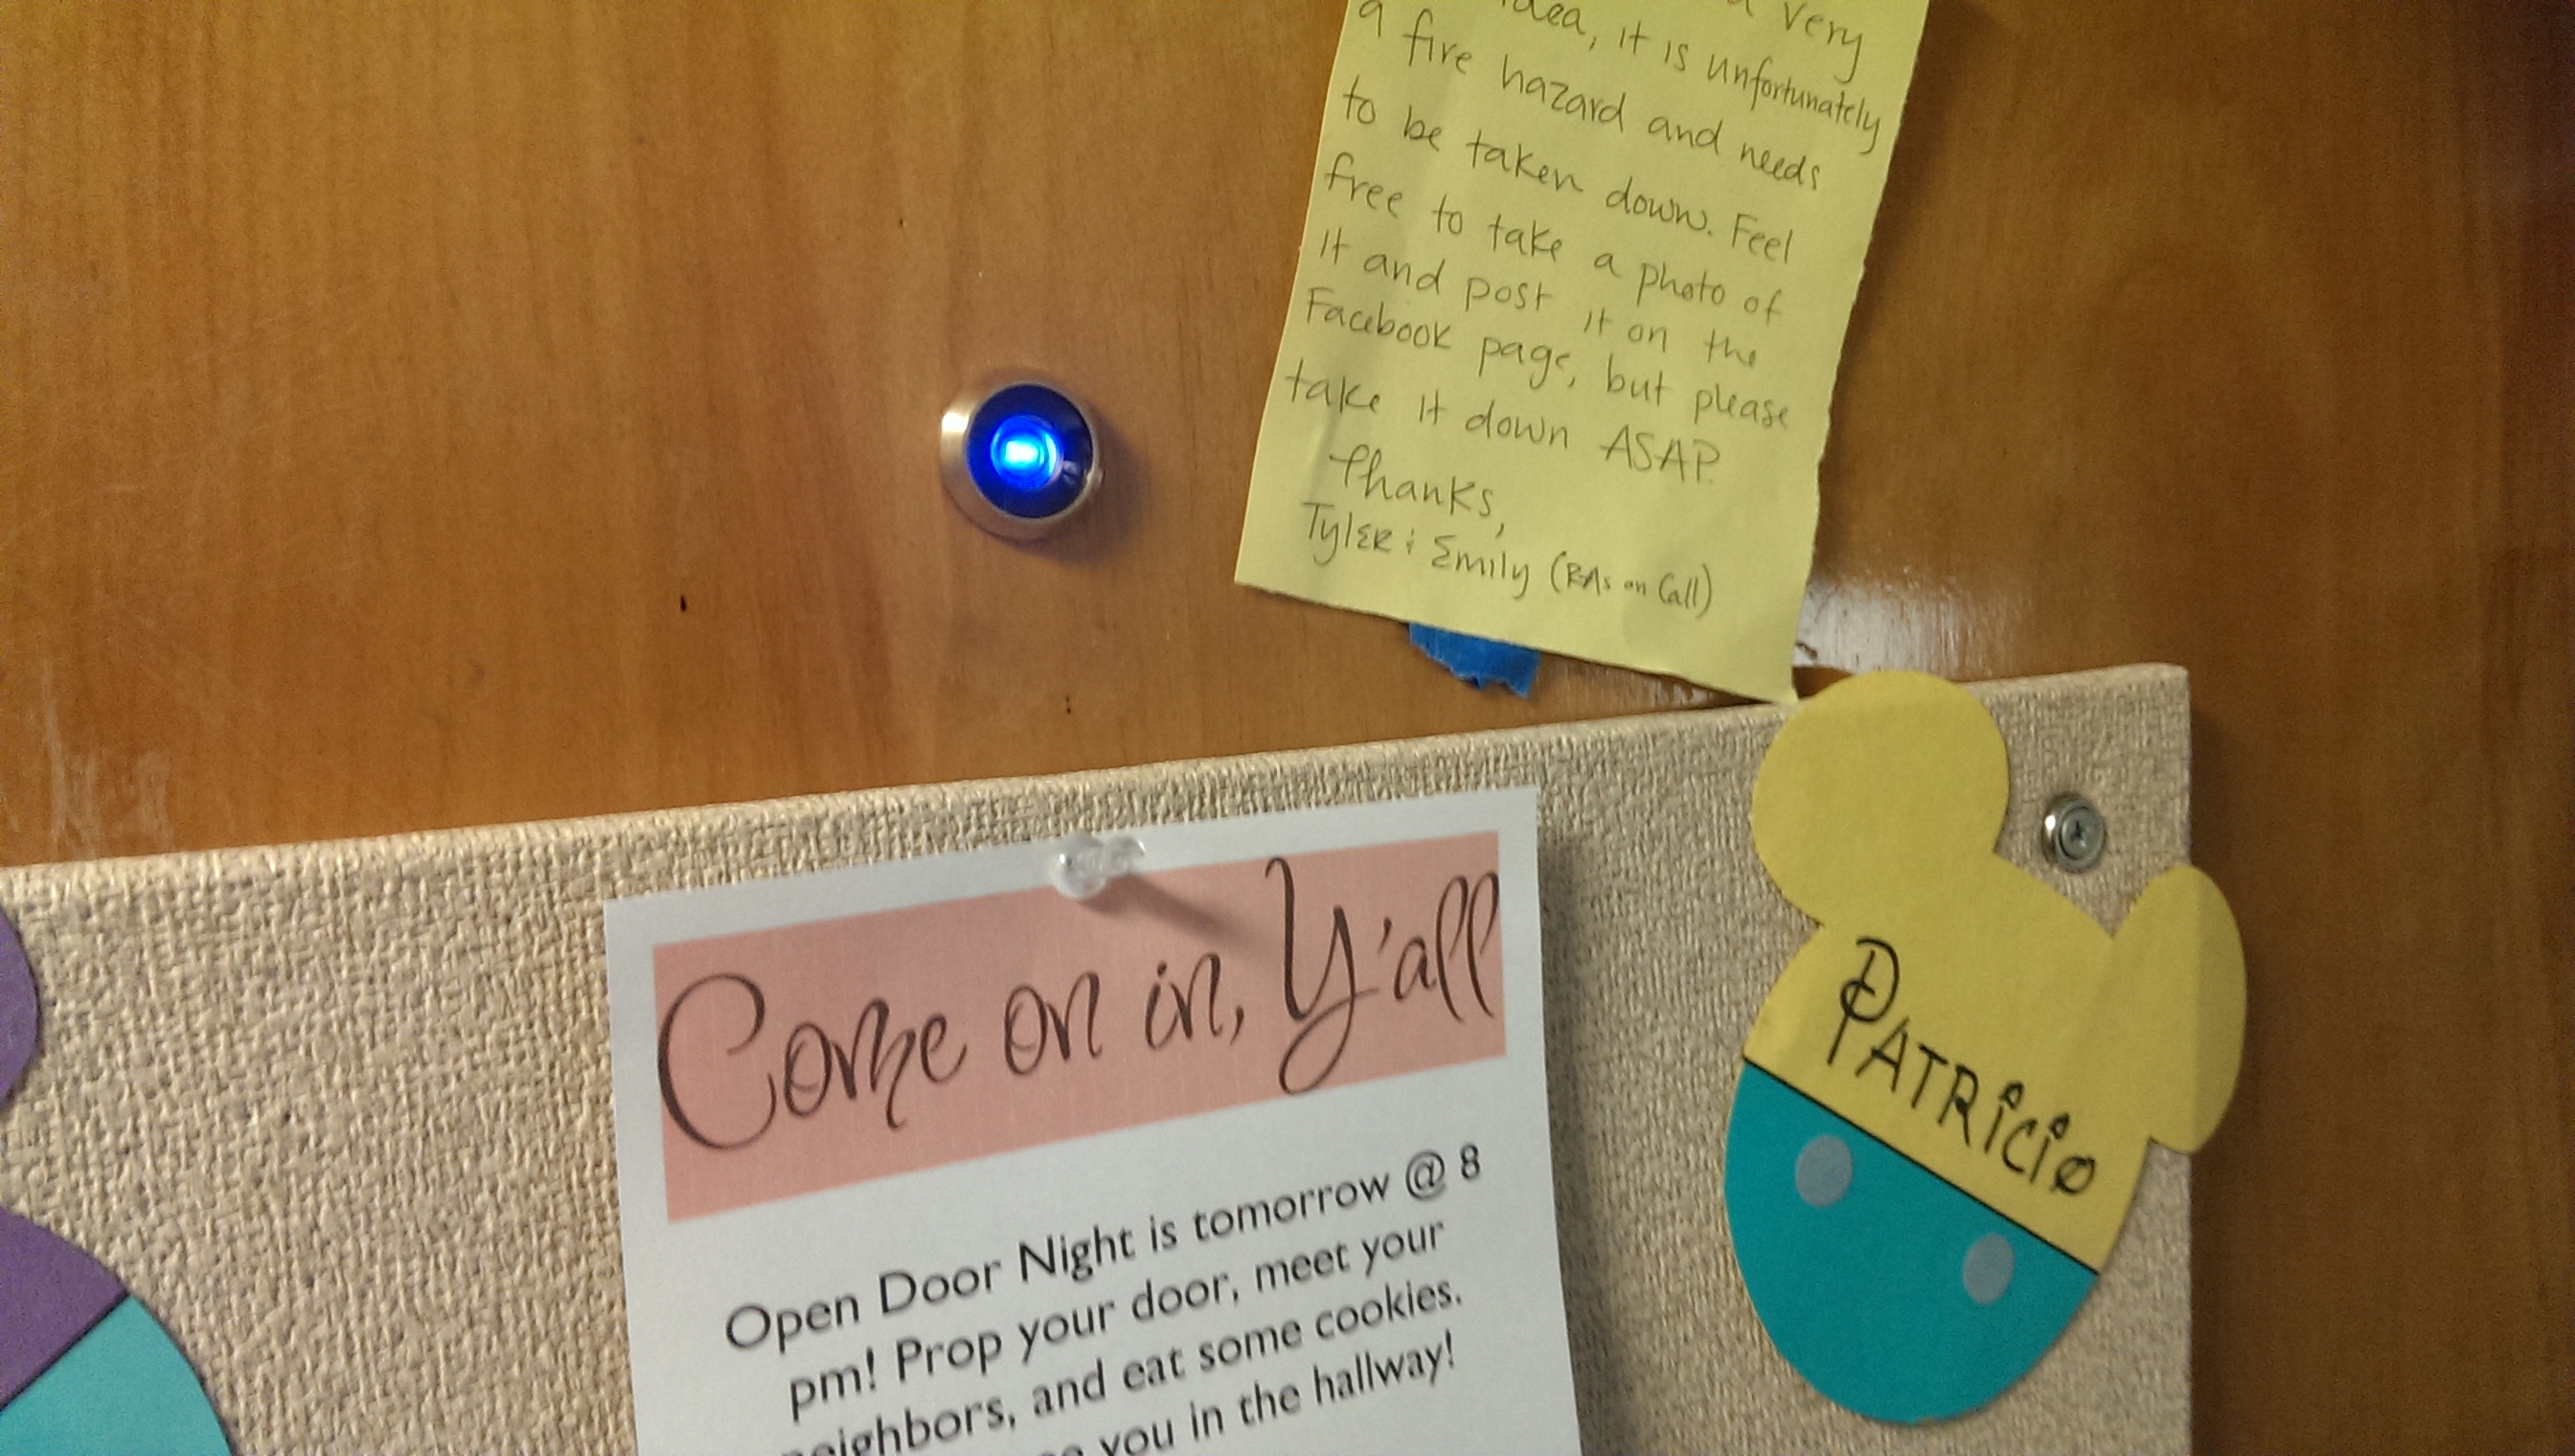 a very
idea, it is unfortunately
a fire hazard and needs
to be taken down. Feel
free to take a photo of
it and post it on the
Facebook page, but please
take it down ASAP.
Thanks,
Tyler & Emily (RAs on Call)
Come on in, Y'all
Open Door Night is tomorrow @ 8
pm! Prop your door, meet your
neighbors, and eat some cookies.
you in the hallway!
PATRiCiO